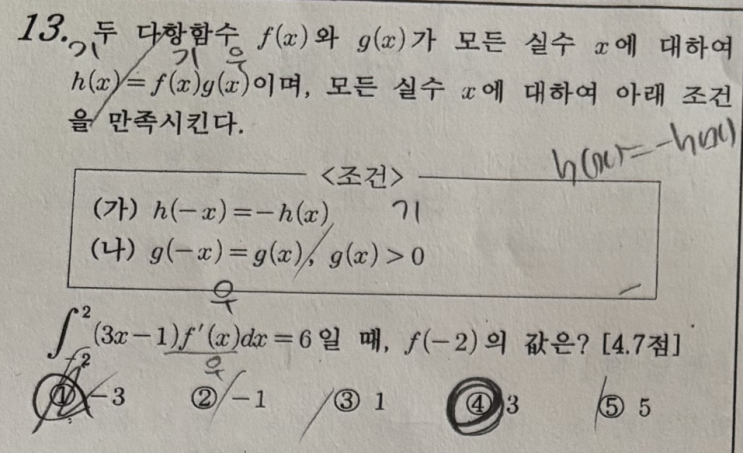 13. 두 다항함수 f(x)와 g(x)가 모든 실수 x에 대하여
기 기 우
h(x)=f(x)g(x)이며, 모든 실수 x에 대하여 아래 조건
을 만족시킨다.
h(x)=-h(x)
<조건>
(가) h(-x)=-h(x) 기
(나) g(-x)=g(x), g(x)>0
우
∫_{-2}^{2}(3x-1)f'(x)dx=6일 때, f(-2)의 값은? [4.7점]
우
① -3 ② -1 ③ 1 ④ 3 ⑤ 5